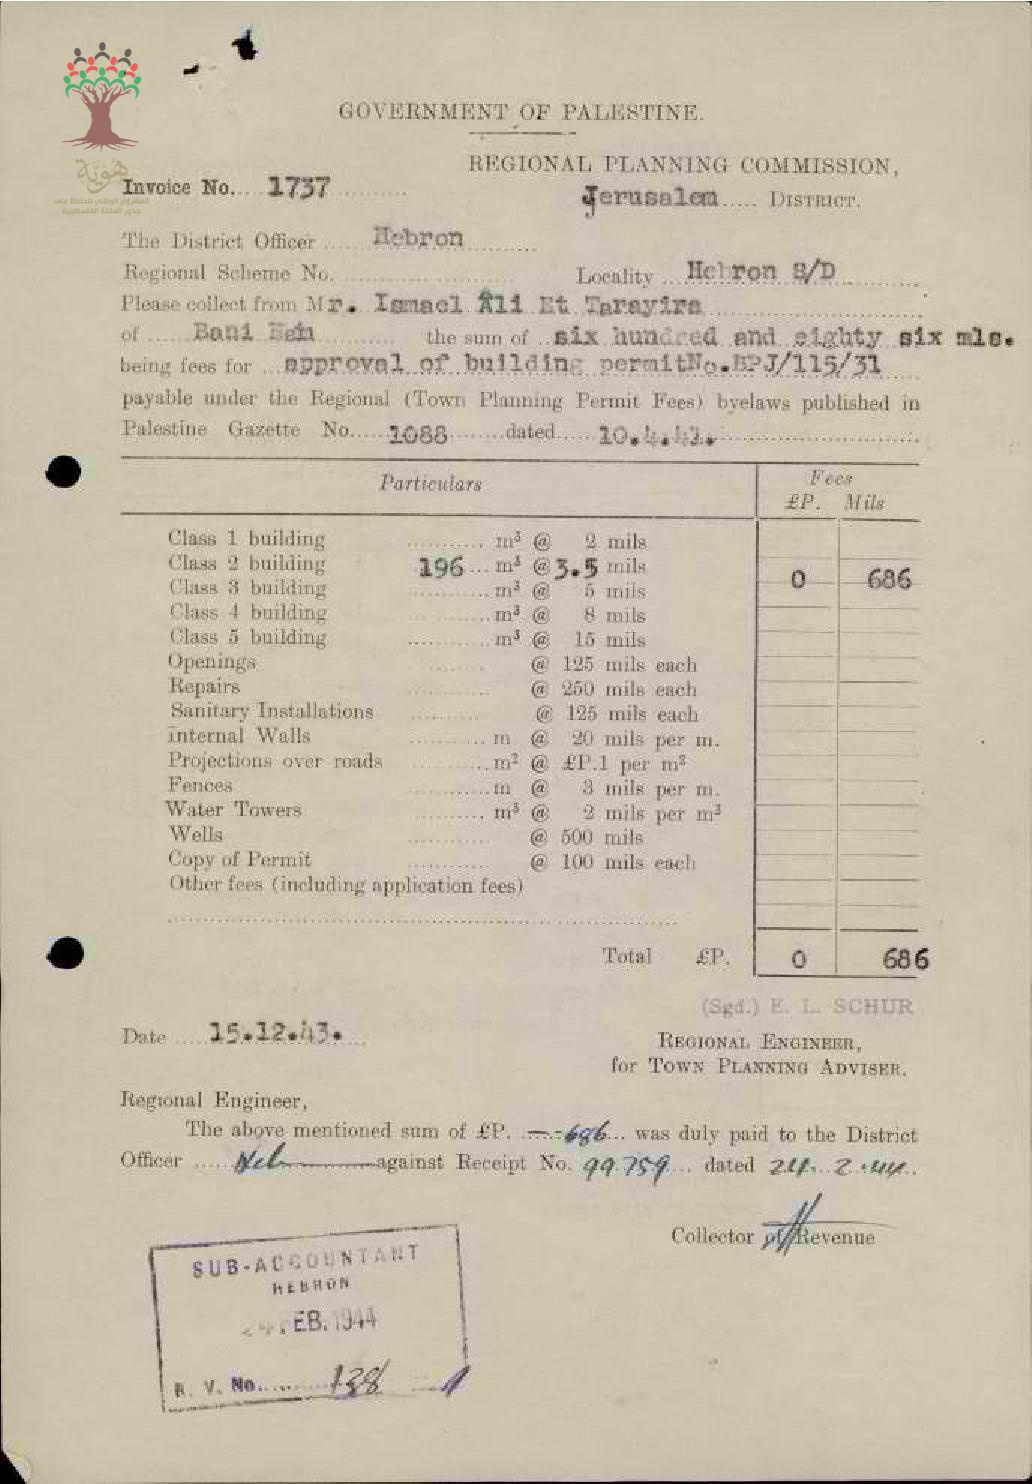 هوية
GOVERNMENT OF PALESTINE.
REGIONAL PLANNING COMMISSION,
Invoice No... 1737 .........
Jerusalem ..... DISTRICT.
The District Officer ...... Hebron ..........
Regional Scheme No. ........................ Locality ... Hebron S/D ............
Please collect from Mr. Ismael Ali Et Tarayira ..............................
of ...... Bani ........... the sum of .. six hundred and eighty six mls.
being fees for ... approval of building permitNo.BPJ/115/31 .....
payable under the Regional (Town Planning Permit Fees) byelaws published in
Palestine Gazette No..... 1088 ........ dated ...... 10.4.41. ..............................
Particulars Fees
£P. Mils
Class 1 building ........... m³ @ 2 mils
Class 2 building 196 ... m³ @ 3.5 mils 0 686
Class 3 building ........... m³ @ 5 mils
Class 4 building ........... m³ @ 8 mils
Class 5 building ........... m³ @ 15 mils
Openings ........... @ 125 mils each
Repairs ........... @ 250 mils each
Sanitary Installations ........... @ 125 mils each
Internal Walls ........... m @ 20 mils per m.
Projections over roads ........... m² @ £P.1 per m²
Fences ........... m @ 3 mils per m.
Water Towers ........... m³ @ 2 mils per m³
Wells ........... @ 500 mils
Copy of Permit ........... @ 100 mils each
Other fees (including application fees)
Total £P. 0 686
(Sgd.) E. L. SCHUR
Date ..... 15.12.43. ...
REGIONAL ENGINEER,
for TOWN PLANNING ADVISER.
Regional Engineer,
The above mentioned sum of £P. —.-686... was duly paid to the District
Officer ..... Heb against Receipt No. 99759 .... dated 24. 2.44 ..
Collector of Revenue
SUB-ACCOUNTANT
HEBRON
24 FEB. 1944
R. V. No. ........ 138